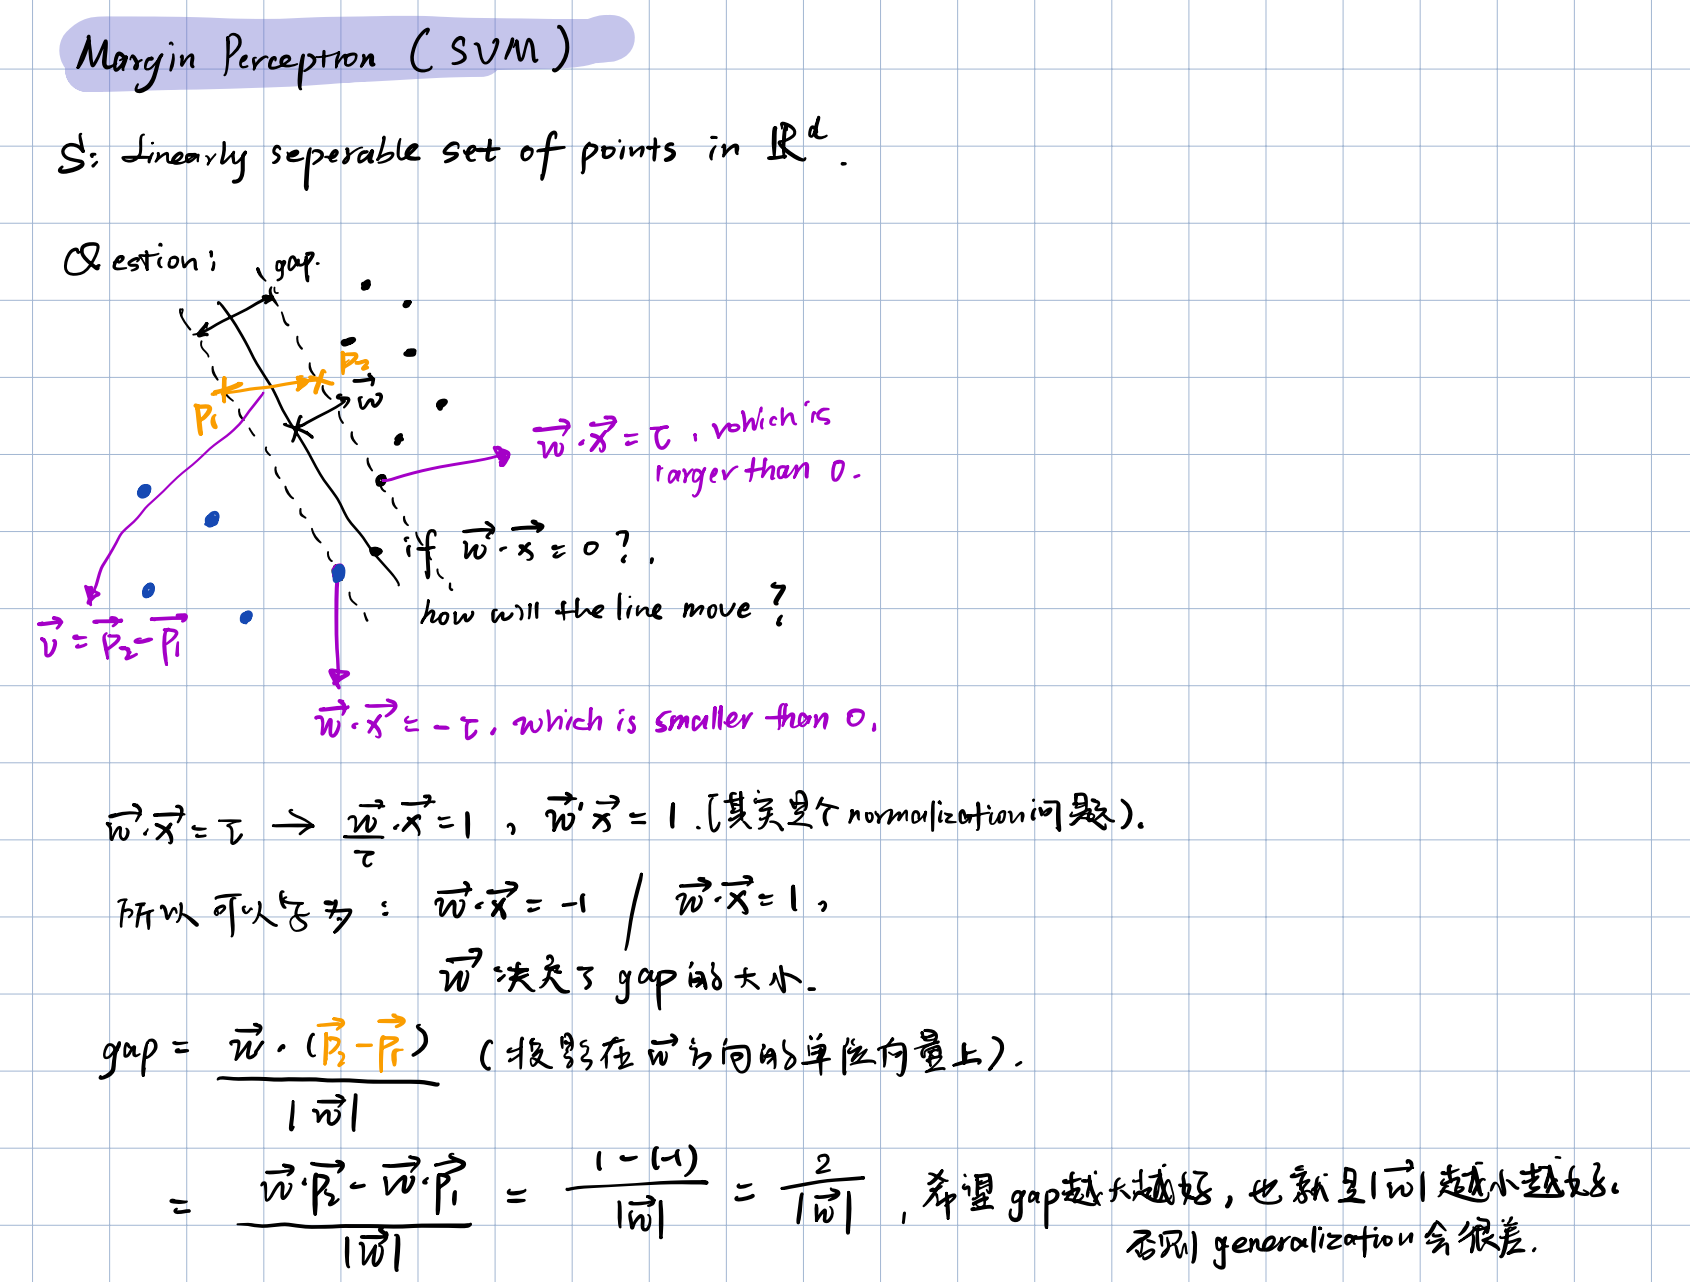 Margin Perception (SVM)
S: Linearly seperable set of points in ℝᵈ.
Qestion:
gap.
P₂
w⃗
P₁
w⃗·x⃗ = τ, which is
larger than 0.
if w⃗·x⃗ = 0 ?.
how will the line move ?
v⃗ = P⃗₂ - P⃗₁
w⃗·x⃗ = -τ, which is smaller than 0.
w⃗·x⃗ = τ → w⃗/τ · x⃗ = 1, w⃗·x⃗ = 1. (其实是个normalization问题).
所以可以写为: w⃗·x⃗ = -1 / w⃗·x⃗ = 1,
w⃗ 决定了 gap 的大小.
gap = w⃗·(P⃗₂ - P⃗₁) / |w⃗| (投影在 w⃗ 方向的单位向量上).
= (w⃗·P⃗₂ - w⃗·P⃗₁) / |w⃗| = (1-(-1)) / |w⃗| = 2 / |w⃗| , 希望 gap越大越好, 也就是|w⃗|越小越好.
否则 generalization 会很差.